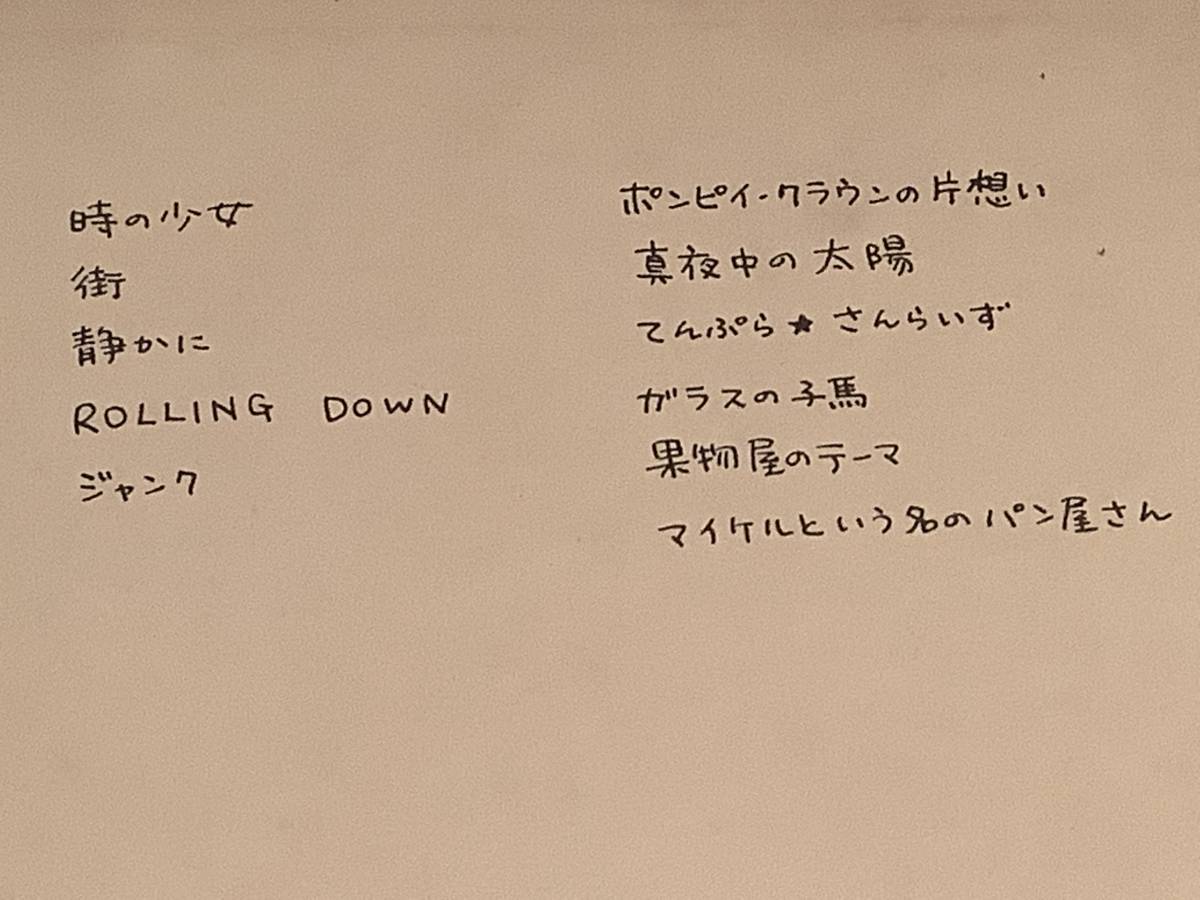 時の少女
街
静かに
ROLLING DOWN
ジャンク
ポンピイ・クラウンの片想い
真夜中の太陽
てんぷら★さんらいず
ガラスの子馬
果物屋のテーマ
マイケルという名のパン屋さん